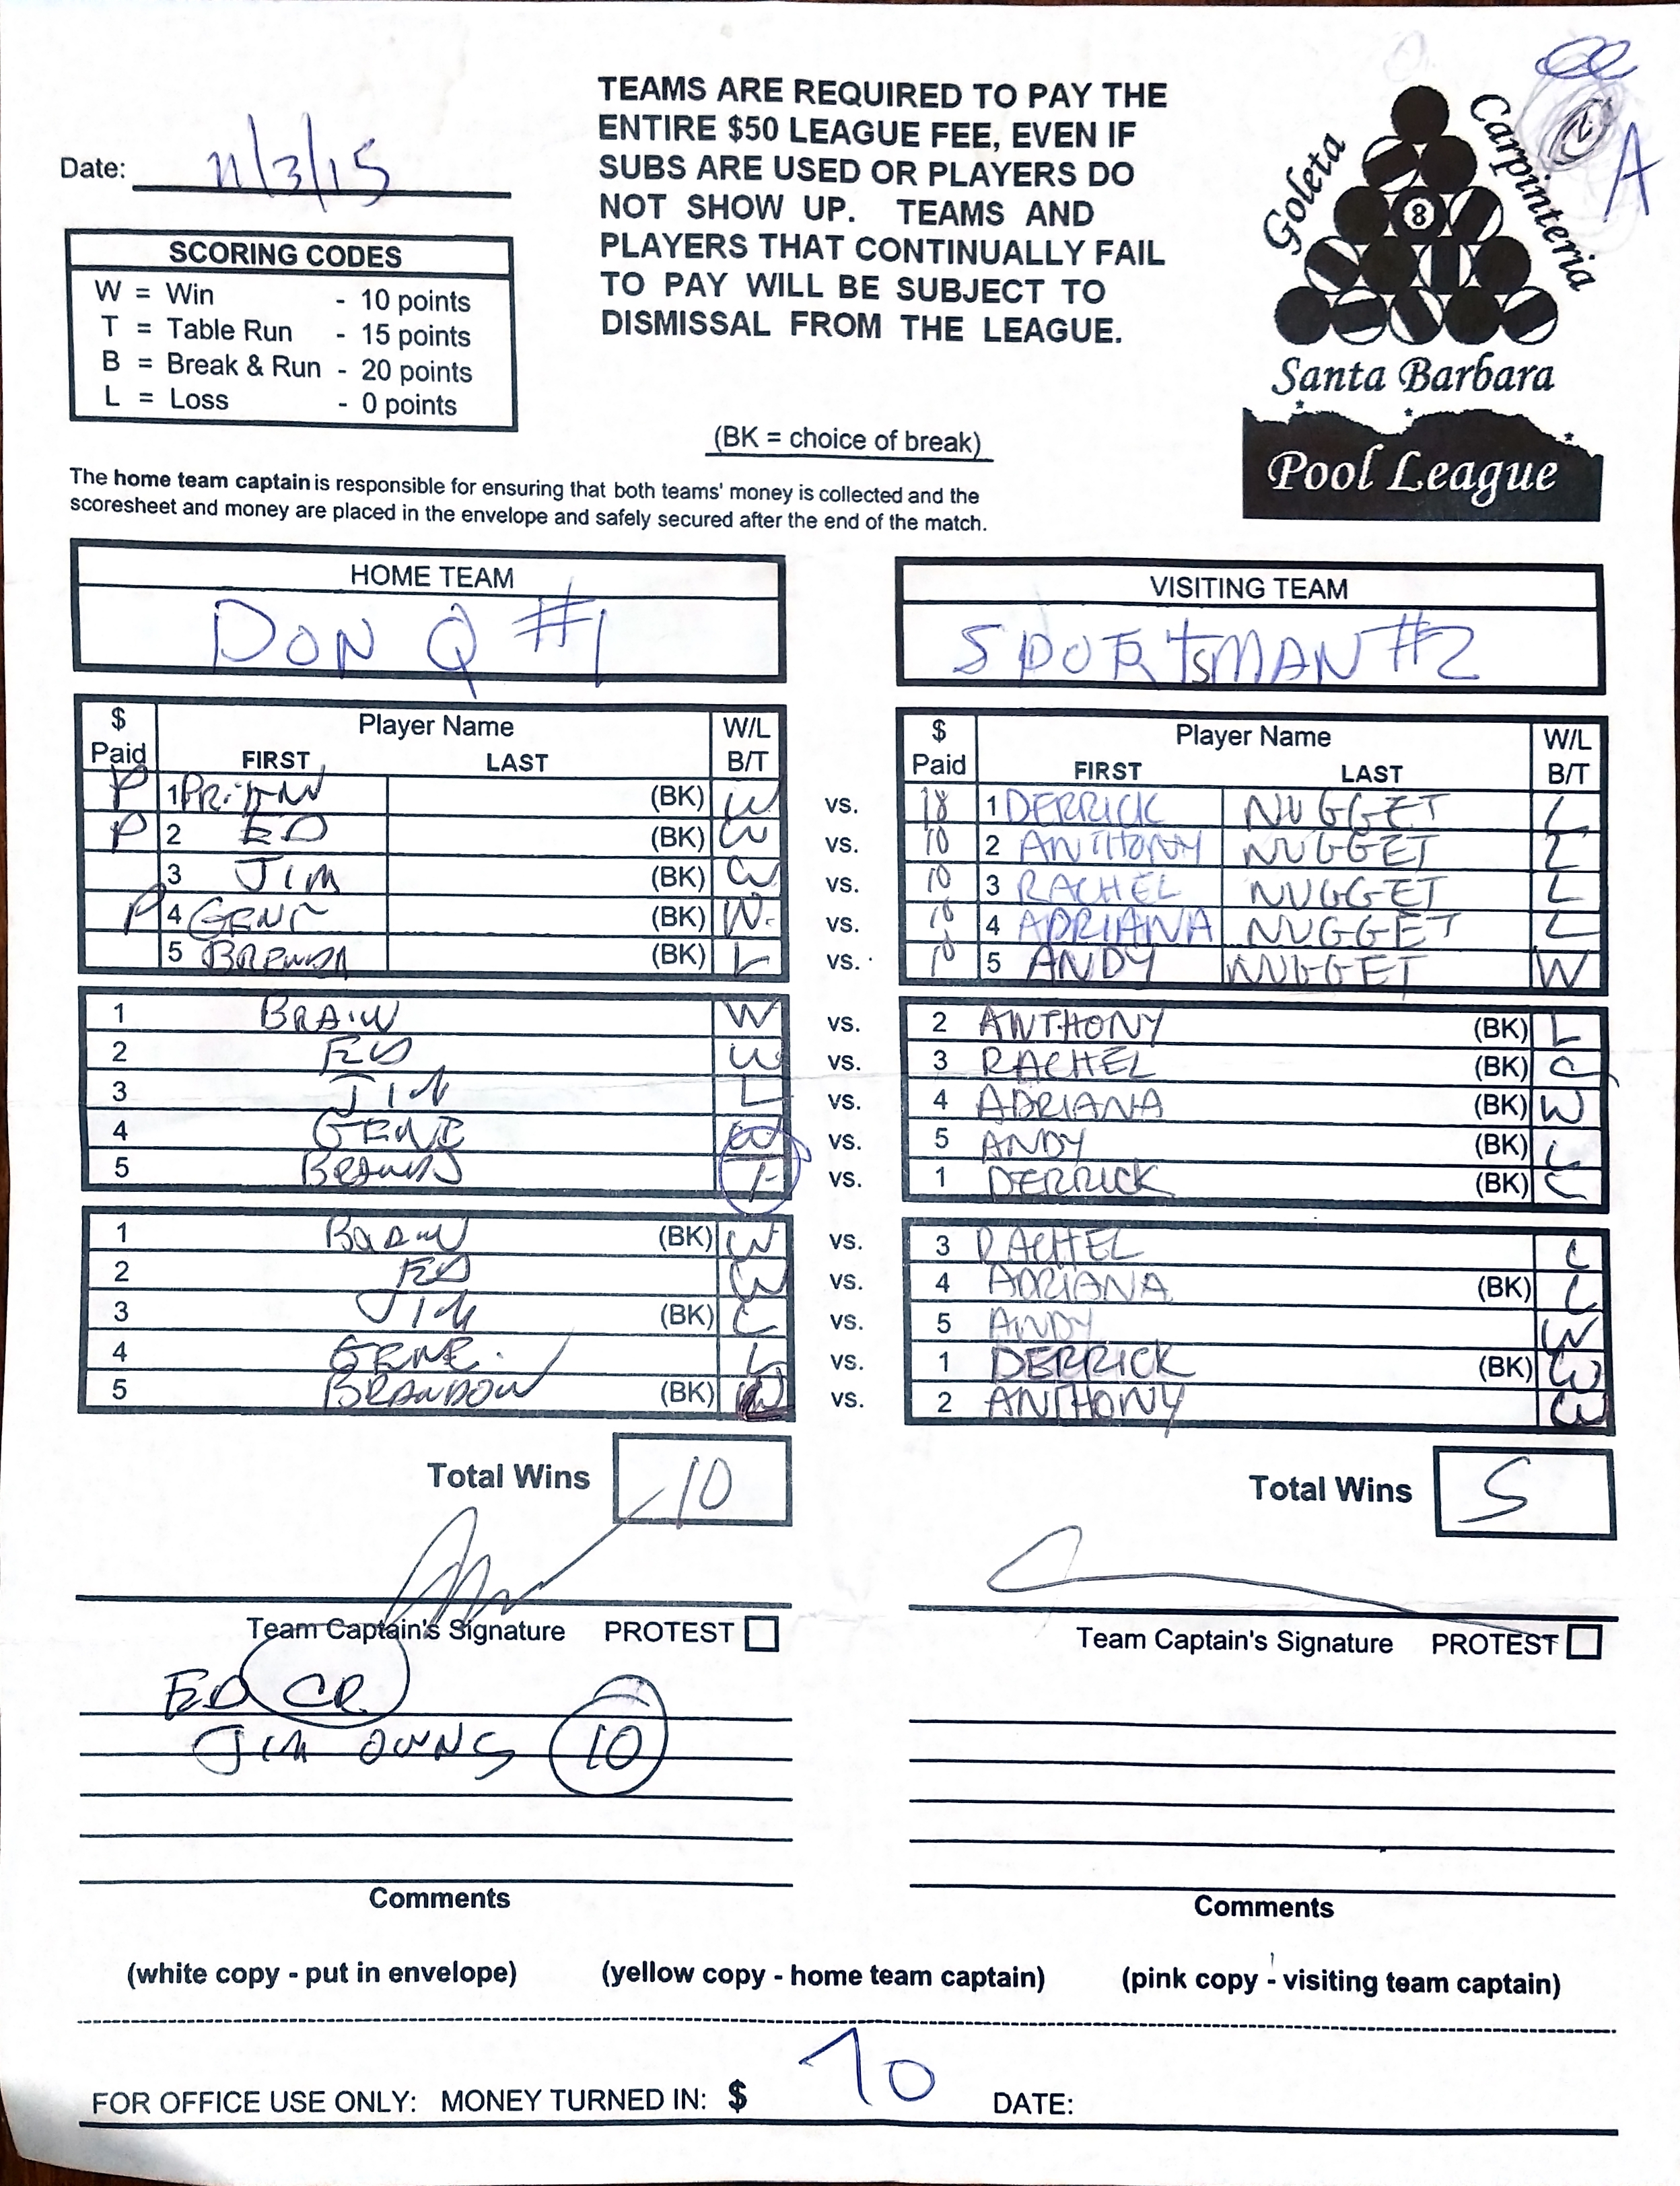 Date: 11/3/15
TEAMS ARE REQUIRED TO PAY THE
ENTIRE $50 LEAGUE FEE, EVEN IF
SUBS ARE USED OR PLAYERS DO
NOT SHOW UP. TEAMS AND
PLAYERS THAT CONTINUALLY FAIL
TO PAY WILL BE SUBJECT TO
DISMISSAL FROM THE LEAGUE.
Goleta
Carpinteria
A
8
Santa Barbara
Pool League
SCORING CODES
W = Win - 10 points
T = Table Run - 15 points
B = Break & Run - 20 points
L = Loss - 0 points
(BK = choice of break)
The home team captain is responsible for ensuring that both teams' money is collected and the
scoresheet and money are placed in the envelope and safely secured after the end of the match.
HOME TEAM
DON Q #1
VISITING TEAM
SPORtsMAN #2
$ Paid Player Name FIRST LAST W/L B/T
$ Paid Player Name FIRST LAST W/L B/T
P 1 (BK) W vs. 1 DERRICK NUGGET L
P 2 ED (BK) W vs. 10 2 ANTHONY NUGGET L
3 JIM (BK) W vs. 10 3 RACHEL NUGGET L
P 4 GENE (BK) W. vs. 10 4 ADRIANA NUGGET L
5 (BK) L vs. 10 5 ANDY NUGGET W
1 BRAIN W vs. 2 ANTHONY (BK) L
2 ED W vs. 3 RACHEL (BK) L
3 JIM L vs. 4 ADRIANA (BK) W
4 GENE W vs. 5 ANDY (BK) L
5 vs. 1 DERRICK (BK) L
1 BRAIN (BK) W vs. 3 RACHEL L
2 ED W vs. 4 ADRIANA (BK) L
3 JIM (BK) L vs. 5 ANDY W
4 GENE L vs. 1 DERRICK (BK) W
5 BRANDON (BK) vs. 2 ANTHONY W
Total Wins 10
Total Wins 5
Team Captain's Signature PROTEST
Team Captain's Signature PROTEST
ED CR
JIM OWNS 10
Comments
Comments
(white copy - put in envelope) (yellow copy - home team captain) (pink copy - visiting team captain)
FOR OFFICE USE ONLY: MONEY TURNED IN: $ 70 DATE: